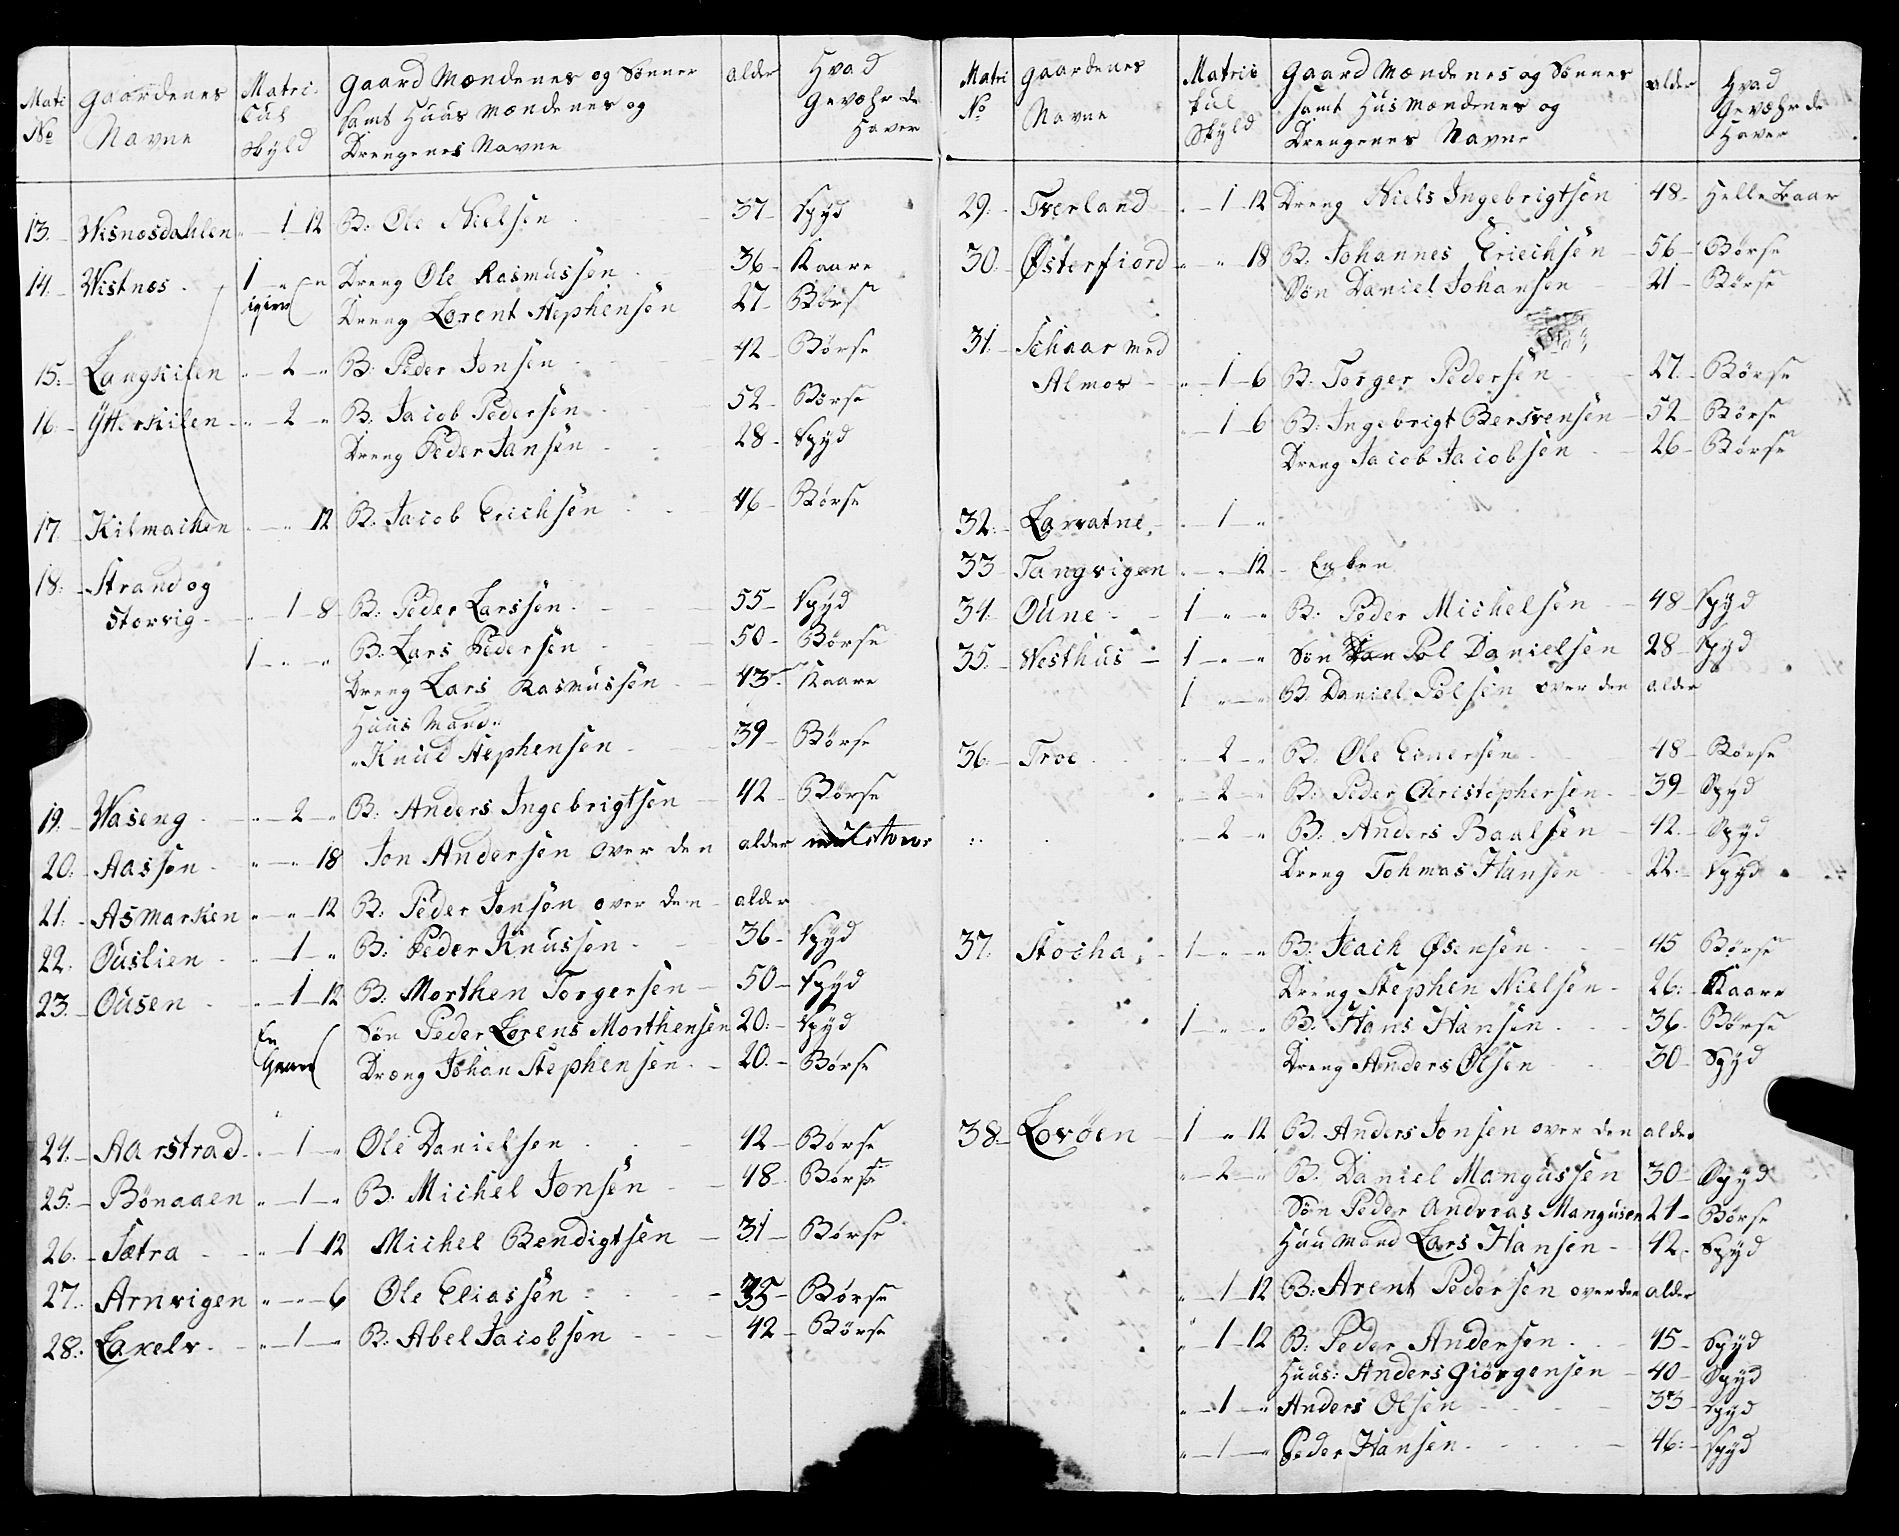 Matr Gaardenes Matri- Gaard Mændenes og Sønner alder Hvad
No Navne Cul samt Huus Mændenes og Gevæhr de
Skyld Drengenes Navne Haver
13. Wisnæsdahlen " 1 12 B: Ole Nielsen 37 Spyd
14. Wistnæs 1 " " Dreng Ole Rasmussen 36 Kaare
Dreng Lorent Stephensen 27 Børse
15. Langkilen " 2 " B: Peder Jonsen 42 Børse
16. Ytterkilen " 2 " B: Jacob Pedersen 52 Børse
Dreng Peder Jansen 28 Spyd
17. Kilmarken " " 12 B: Jacob Erichsen 46 Børse
18. Strand og
Storvig " 1 8 B: Peder Larssen 55 Spyd
1 " " B: Lars Pedersen 50 Børse
Dreng Lars Rasmussen 43 Kaare
Huus Mand
Knud Stephensen 39 Børse
19. Waseng " 2 " B: Anders Ingebrigtsen 42 Børse
20. Aassen " " 18 Jon Andersen over den alder
21. Asmarken " " 12 B: Peder Jonsen over den alder
22. Ouslien " 1 " B: Peder Knussen 36 Spyd
23. Ousen " 1 12 B: Morthen Torgersen 50 Spyd
En Søn Peder Lorens Morthensen 20 Spyd
Gaard Dreng Johan Stephensen 20 Børse
24. Aarstrad " 1 " Ole Danielsen 42 Børse
25. Bønaaen " 1 " B: Michel Jonsen 48 Børse
26. Sætra " 1 12 Michel Bendigtsen 31 Børse
27. Arnvigen " " 6 Ole Eliassen 35 Børse
28. Laxelv " 1 " B: Abel Jacobsen 42 Børse
Matri Gaardenes Matric Gaard Mændenes og Sønnes alder Hvad
No Navne kul samt Huusmændenes og Gevæhr de
Skyld Drengenes Navne Haver
29. Tverland " 1 12 Dreng Niels Ingebrigtsen 48 Hellebaar
30. Østerfiord " " 18 B. Johannes Eriechsen 56 Børse
Søn Daniel Johansen 21 Børse
31. Schaar med
Almos " 1 6 B: Torger Pedersen 27 Børse
1 6 B: Ingebrigt Bersvensen 52 Børse
Dreng Jacob Jacobsen 26 Børse
32. Larvatne " 1 "
33 Tangvigen " " 12 Enken
34. Oune 1 " " B: Peder Michelsen 48 Spyd
35. Westhus 1 " " Søn Pol Danielsen 28 Spyd
1 " " B. Daniel Polsen over den alder
36. Troe " 2 " B. Ole Einersen 48 Børse
" 2 " B: Peder Christophersen 39 Spyd
" 2 " B: Anders Baalsen 42 Spyd
Dreng Tohmas Hansen 22 Spyd
37. Stocha 1 " " B: Isach Øsensen 45 Børse
Dreng Stephen Nielsen 26 Kaare
1 " " B: Hans Hansen 36 Børse
Dreng Anders Olsen 30 Spyd
38. Lovøen 1 " 12 B. Anders Jonsen over den alder
" 2 " B. Daniel Mangussen 30 Spyd
Søn Peder Andreas Mangusen 21 Børse
Huumand Lars Hansen 42 Spyd
" 1 12 B: Arent Pedersen over den alder
" 1 12 B: Peder Andersen 45 Spyd
Huus: Anders Giørgensen 40 Spyd
" 1 " Anders Olsen 33 Spyd
" 1 " Peder Hansen 46 Spyd